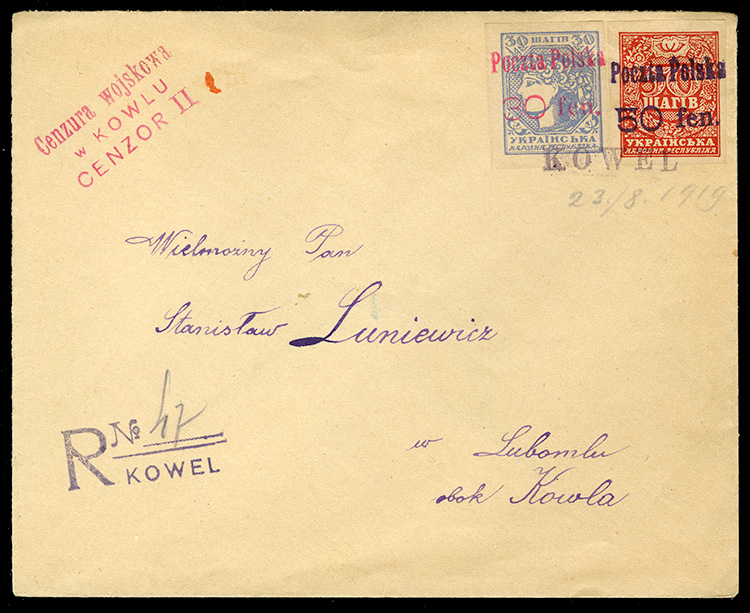 Cenzura wojskowa
w KOWLU
CENZOR II
30 ШАГІВ 30
Poczta Polska
fen.
УКРАЇНСЬКА
НАРОДНЯ РЕСПУБЛІКА
Poczta Polska
ШАГІВ
50 fen.
УКРАЇНСЬКА
НАРОДНЯ РЕСПУБЛІКА
KOWEL
23./8. 1919
Wielmożny Pan
Stanisław Luniewicz
R № 47
KOWEL
w Lubomlu
obok Kowla